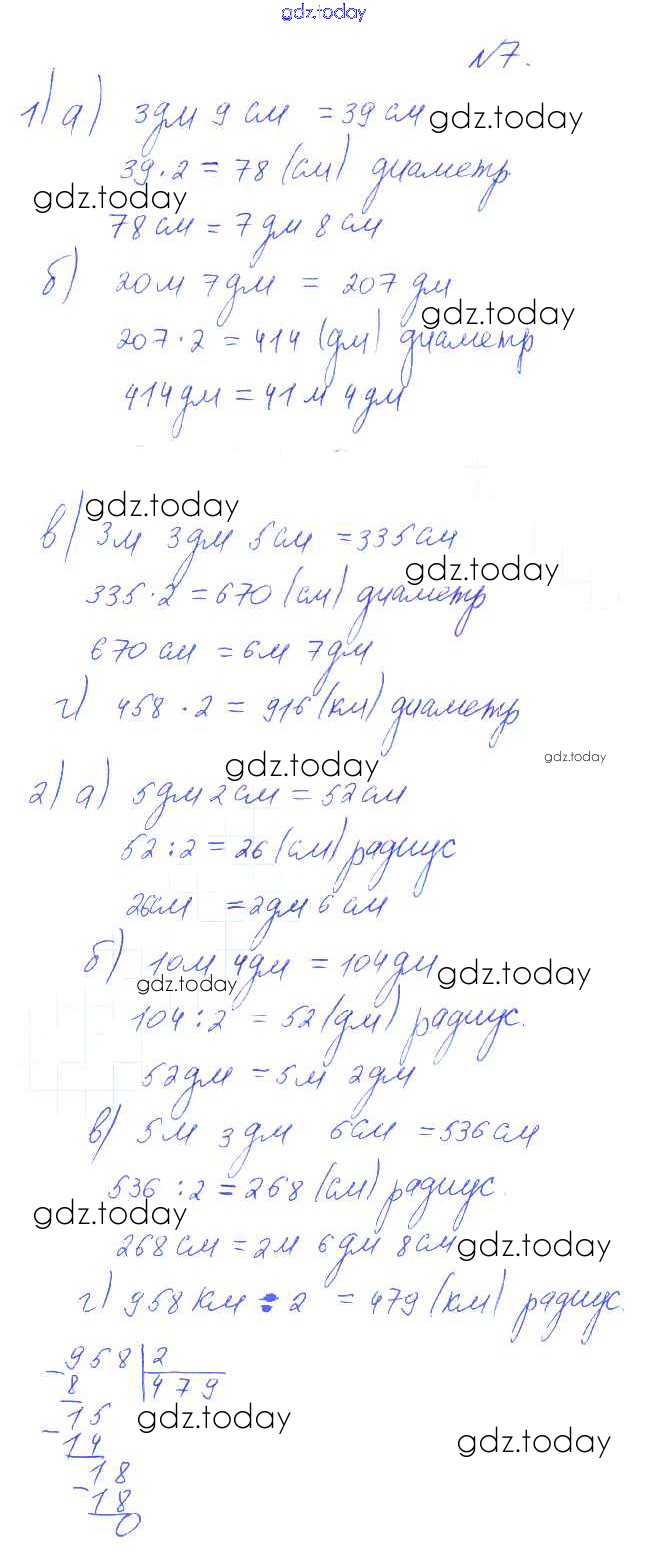 gdz.today
№7.
1) а) 3дм 9 см = 39 см gdz.today
39·2 = 78 (см) диаметр
gdz.today
78 см = 7 дм 8 см
б) 20 м 7 дм = 207 дм
gdz.today
207·2 = 414 (дм) диаметр
414 дм = 41 м 4 дм
gdz.today
в) 3м 3дм 5см = 335 см
gdz.today
335·2 = 670 (см) диаметр
670 см = 6м 7дм
г) 458 · 2 = 916 (км) диаметр
gdz.today gdz.today
2) а) 5дм 2 см = 52 см
52 : 2 = 26 (см) радиус
26см = 2дм 6 см
б) 10м 4дм = 104 дм gdz.today
gdz.today
104 : 2 = 52 (дм) радиус.
52дм = 5м 2дм
в) 5 м 3 дм 6 см = 536 см
536 : 2 = 268 (см) радиус.
gdz.today
268 см = 2м 6 дм 8 см gdz.today
г) 958 км : 2 = 479 (км) радиус.
958 | 2
- 8 479
15 gdz.today
- 14 gdz.today
18
- 18
0